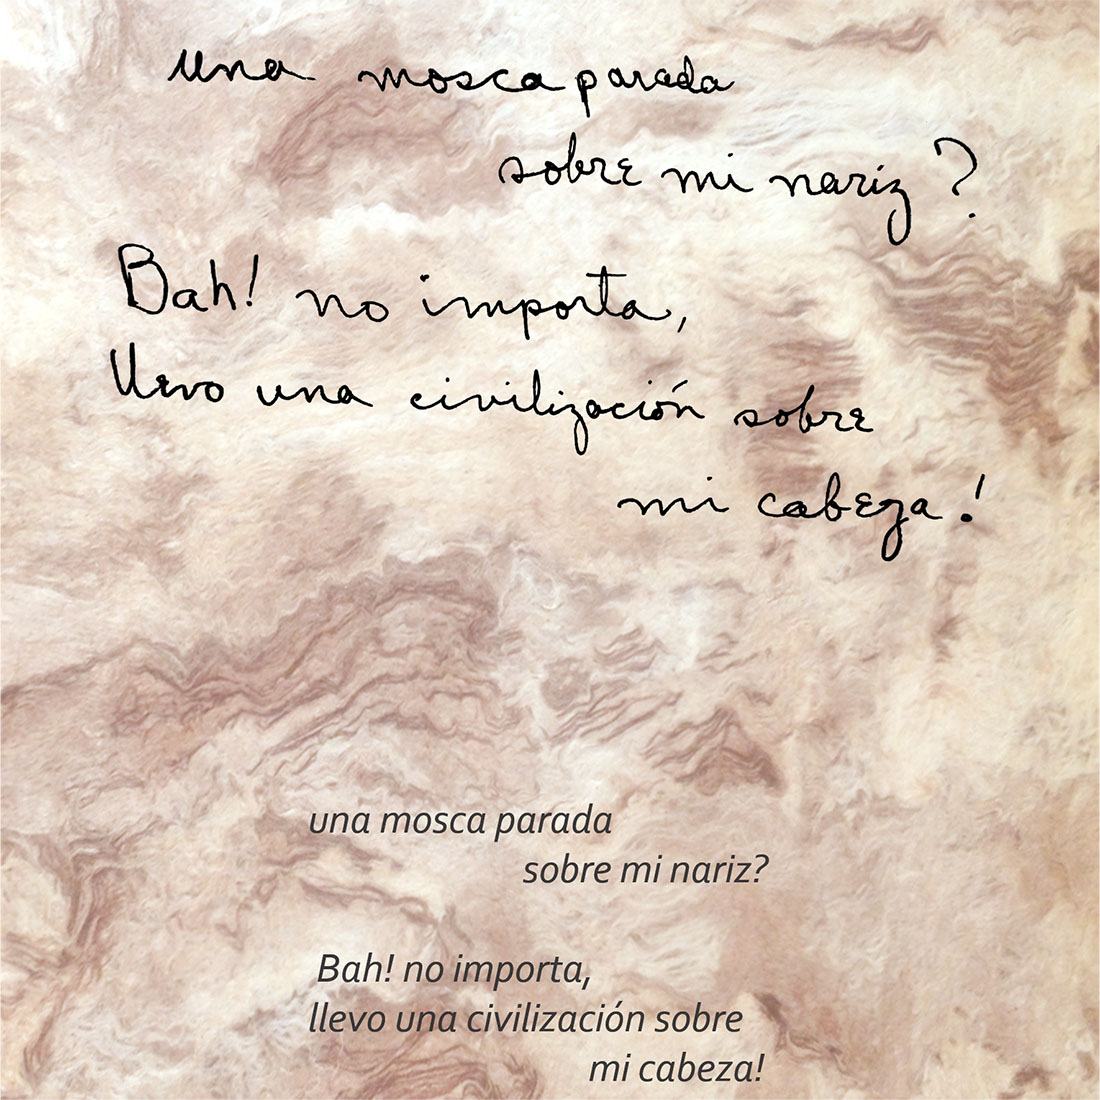 una mosca parada
sobre mi nariz?
Bah! no importa,
llevo una civilización sobre
mi cabeza!
una mosca parada
sobre mi nariz?
Bah! no importa,
llevo una civilización sobre
mi cabeza!